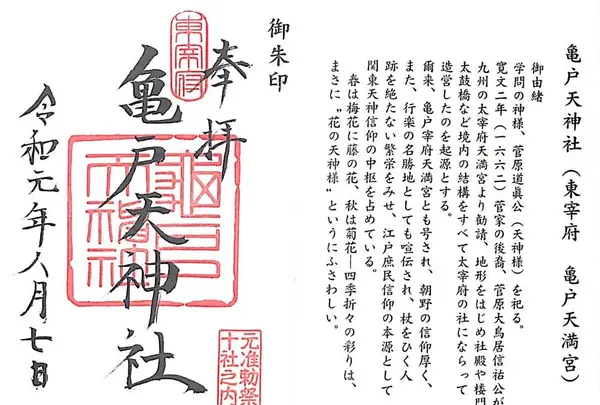 亀戸天神社（東宰府　亀戸天満宮）
御由緒
学問の神様、菅原道眞公（天神様）を祀る。
寛文二年（一六六二）菅家の後裔、菅原大鳥居信祐公が
九州の太宰府天満宮より勧請、地形をはじめ社殿や楼門
太鼓橋など境内の結構をすべて太宰府の社にならって
造営したのを起源とする。
爾来、亀戸宰府天満宮とも号され、朝野の信仰厚く、
また、行楽の名勝地としても喧伝され、杖をひく人
跡を絶たない繁栄をみせ、江戸庶民信仰の本源として
関東天神信仰の中枢を占めている。
春は梅花に藤の花、秋は菊花―四季折々の彩りは、
まさに〝花の天神様〟というにふさわしい。
御朱印
奉拝
東宰府
亀戸天神社
元准勅祭
十社之内
令和元年八月七日